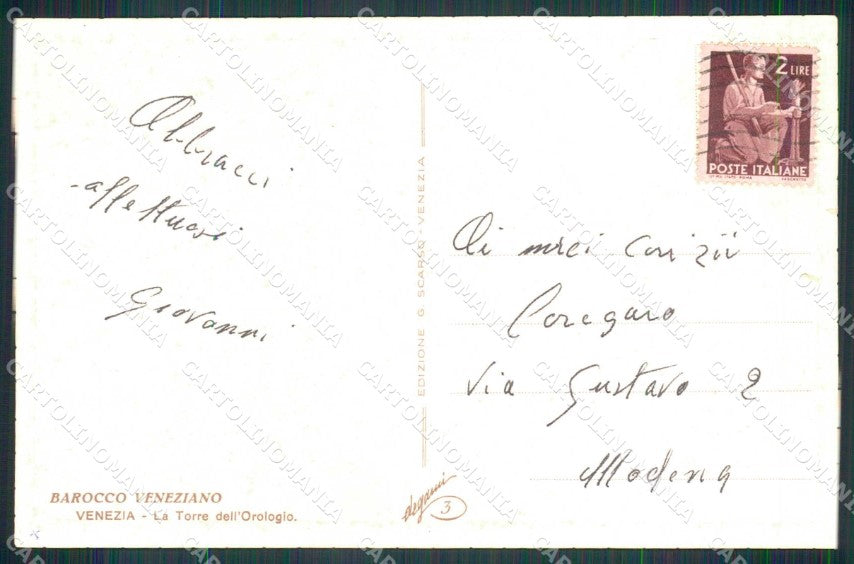 Abbracci
affettuosi
Giovanni
BAROCCO VENEZIANO
VENEZIA - La Torre dell'Orologio.
EDIZIONE G. SCARSO - VENEZIA
3
2 LIRE
POSTE ITALIANE
Ai miei
Coregaro
Via Gustavo 2
Modena
CARTOLINOMANIA